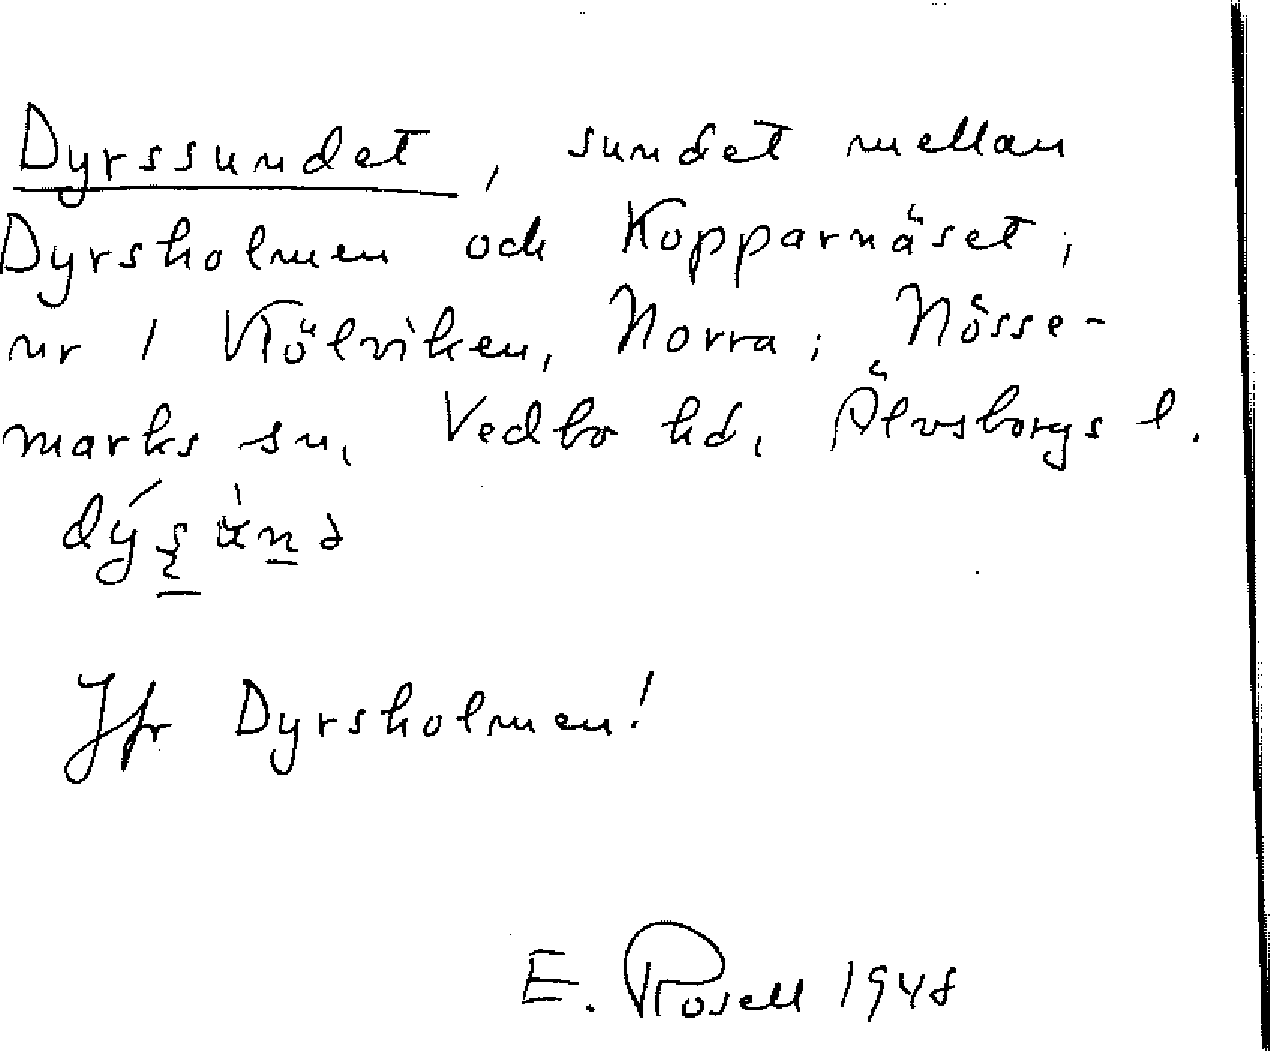 Dyrssundet, sundet mellan
Dyrsholmen och Kopparnäset;
nr 1 Kölviken, Norra; Nösse-
marks sn, Vedbo hd, Älvsborgs l.
Jfr Dyrsholmen!
E. Rosell 1948